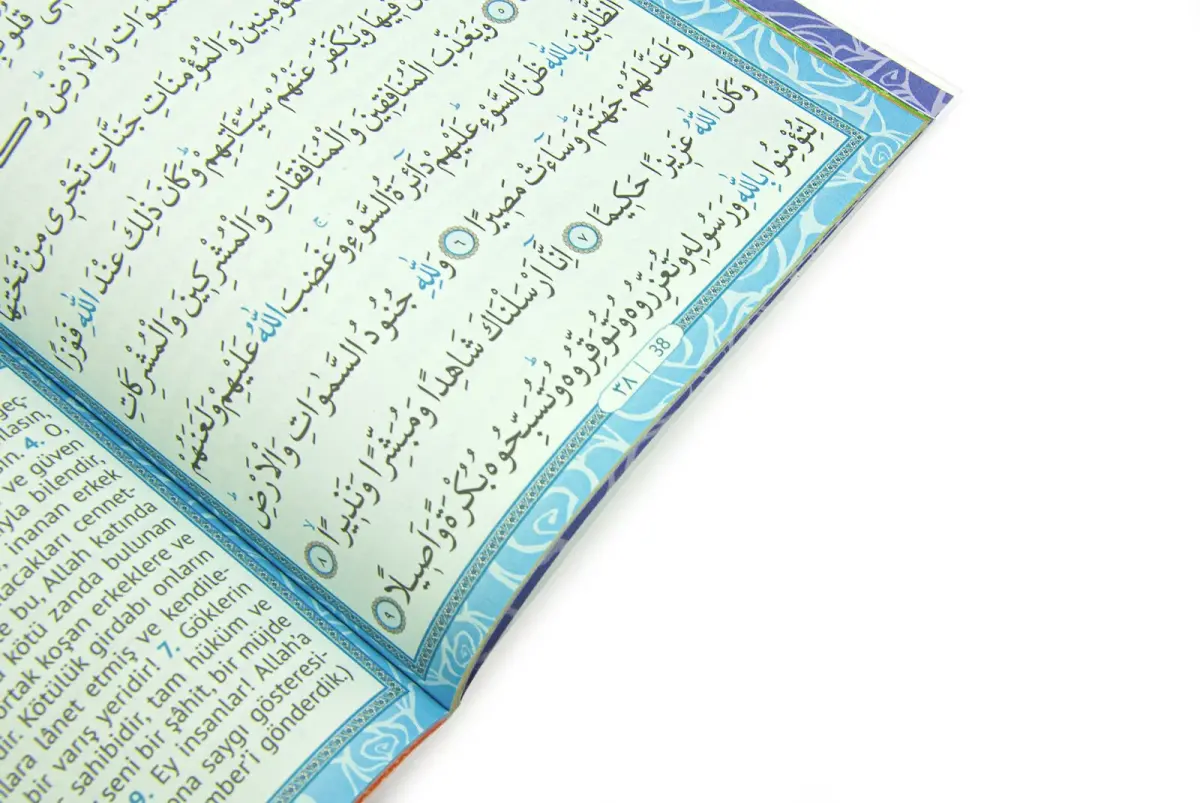 وَالْاَرْضِ
وَالْمُؤْمِنَاتِ جَنَّاتٍ تَجْرِى مِنْ تَحْتِهَا
فِيهَا وَيُكَفِّرَ عَنْهُمْ سَيِّـَٔاتِهِمْ وَكَانَ ذٰلِكَ عِنْدَ اللّٰهِ فَوْزًا
٥ وَيُعَذِّبَ الْمُنَافِقِينَ وَالْمُنَافِقَاتِ وَالْمُشْرِكِينَ وَالْمُشْرِكَاتِ
الظَّٓانِّينَ بِاللّٰهِ ظَنَّ السَّوْءِ عَلَيْهِمْ دَٓائِرَةُ السَّوْءِ وَغَضِبَ اللّٰهُ عَلَيْهِمْ وَلَعَنَهُمْ
وَاَعَدَّ لَهُمْ جَهَنَّمَ وَسَٓاءَتْ مَصِيرًا ٦ وَلِلّٰهِ جُنُودُ السَّمٰوَاتِ وَالْاَرْضِ
وَكَانَ اللّٰهُ عَزِيزًا حَكِيمًا ٧ اِنَّٓا اَرْسَلْنَاكَ شَاهِدًا وَمُبَشِّرًا وَنَذِيرًا ٨
لِتُؤْمِنُوا بِاللّٰهِ وَرَسُولِهِ وَتُعَزِّرُوهُ وَتُوَقِّرُوهُ وَتُسَبِّحُوهُ بُكْرَةً وَاَصِيلًا ٩
٣٨ | 38
4. O,
ve güven
bilendir,
inanan erkek
cennet-
bu, Allah katında
kötü zanda bulunan
ortak koşan erkeklere ve
Kötülük girdabı onların
lânet etmiş ve kendile-
bir varış yeridir! 7. Göklerin
sahibidir, tam hüküm ve
seni bir şâhit, bir müjde
9. Ey insanlar! Allah'a
ona saygı gösteresi-
gönderdik.)